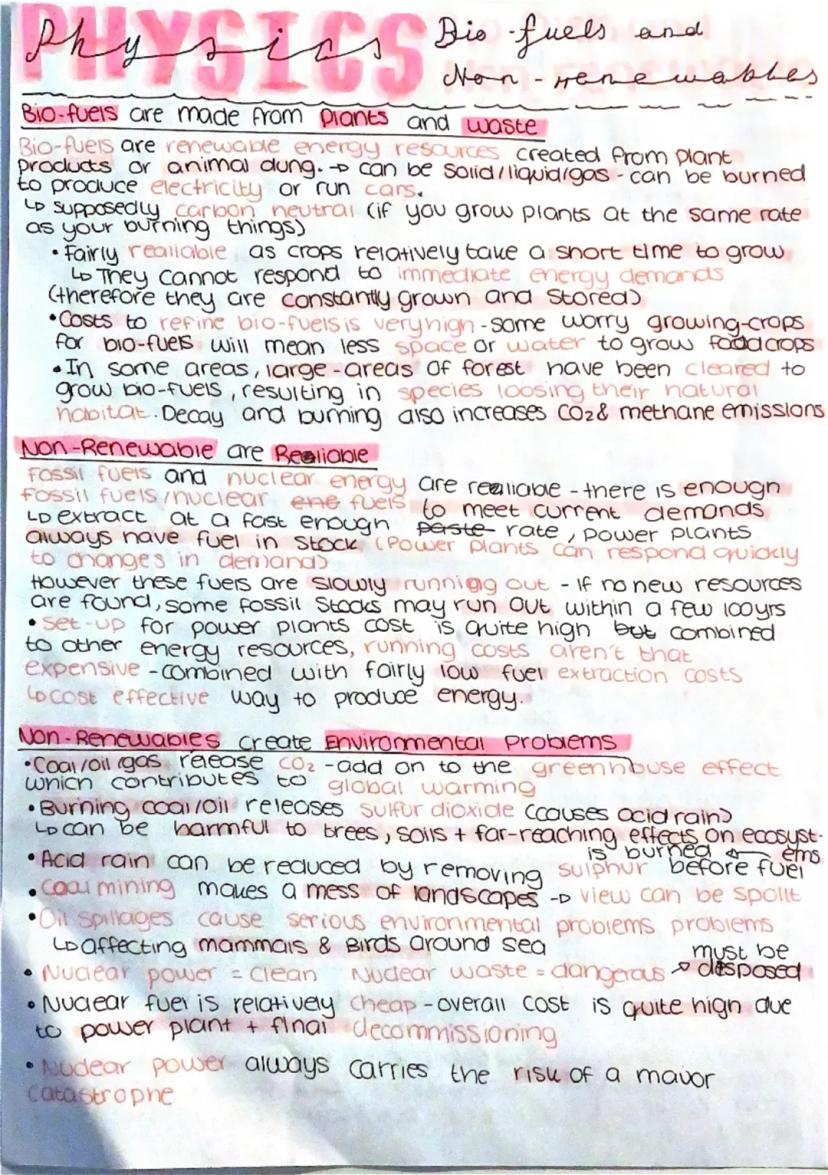 PHYSICS
Physics
Bio-fuels and
Non-renewables
Bio-fuels are made from plants and waste
Bio-fuels are renewable energy resources created from plant
products or animal dung. → can be solid/liquid/gas - can be burned
to produce electricity or run cars.
↳ supposedly carbon neutral (if you grow plants at the same rate
as your burning things)
• Fairly realiable as crops relatively take a short time to grow
↳ They cannot respond to immediate energy demands
(therefore they are constantly grown and stored)
• Costs to refine bio-fuels is very high - some worry growing-crops
for bio-fuels will mean less space or water to grow food crops
• In some areas, large-areas of forest have been cleared to
grow bio-fuels, resulting in species loosing their natural
habitat. Decay and burning also increases CO2 & methane emissions
Non-Renewable are Realiable
Fossil fuels and nuclear energy are realiable - there is enough
fossil fuels/nuclear ene fuels to meet current demands
↳ extract at a fast enough paste rate, power plants
always have fuel in stock (Power plants can respond quickly
to changes in demand)
However these fuels are slowly running out - if no new resources
are found, some fossil stocks may run out within a few 100yrs
• set-up for power plants cost is quite high but combined
to other energy resources, running costs aren't that
expensive - combined with fairly low fuel extraction costs
↳ cost effective way to produce energy.
Non-Renewables create Environmental Problems
• Coal/oil/gas release CO2 - add on to the greenhouse effect
which contributes to global warming
• Burning coal/oil releases sulfur dioxide (causes acid rain)
↳ can be harmful to trees, soils + far-reaching effects on ecosyst-
ems
• Acid rain can be reduced by removing sulphur before fuel
is burned ←
• Coal mining makes a mess of landscapes → view can be spoilt
• Oil spillages cause serious environmental problems problems
↳ affecting mammals & Birds around sea
• Nuclear power = clean Nuclear waste = dangerous → must be
desposed
• Nuclear fuel is relatively cheap - overall cost is quite high due
to power plant + final decommissioning
• Nuclear power always carries the risk of a mavor
catastrophe